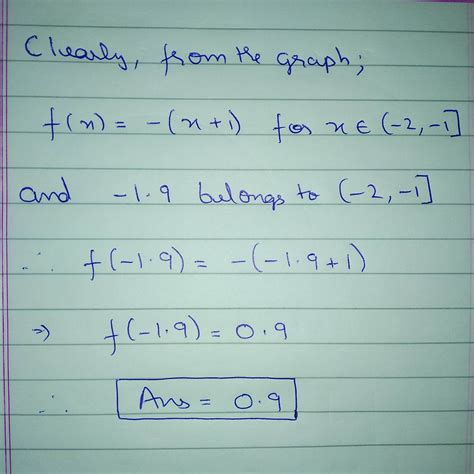 Clearly, from the graph;
f(x) = -(x+1) for x ∈ (-2, -1]
and -1.9 belongs to (-2, -1]
∴ f(-1.9) = -(-1.9+1)
⇒ f(-1.9) = 0.9
∴ Ans = 0.9